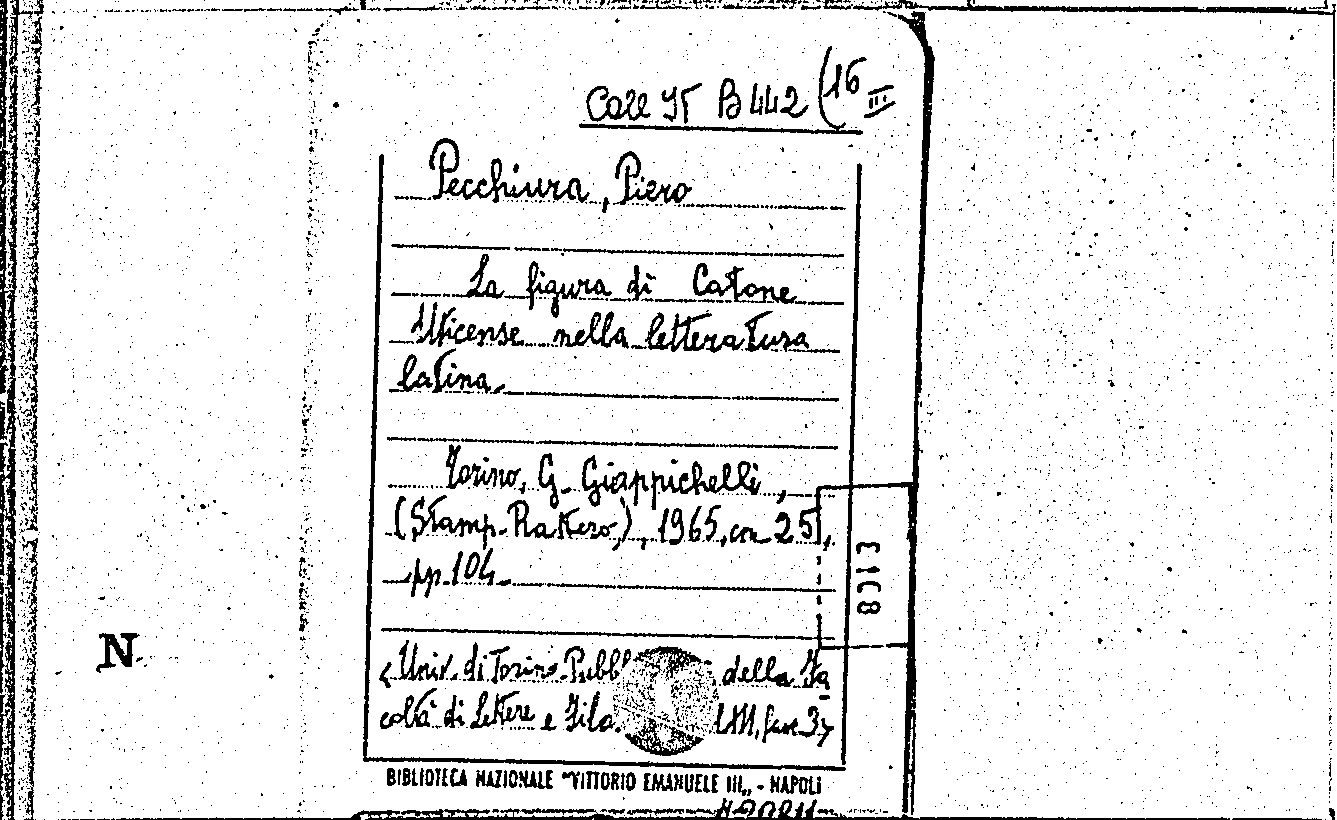 Coll It B 442 (16 III
Pecchiura, Piero
La figura di Catone
Uticense nella letteratura
latina.
Torino, G. Giappichelli,
(Stamp. Rattero,), 1965, cm 25,
pp. 104.
E108
<Univ. di Torino. Pubbl della Fa
coltà di Lettere e Filo fasc. 3>
N
BIBLIOTECA NAZIONALE "VITTORIO EMANUELE III„ - NAPOLI